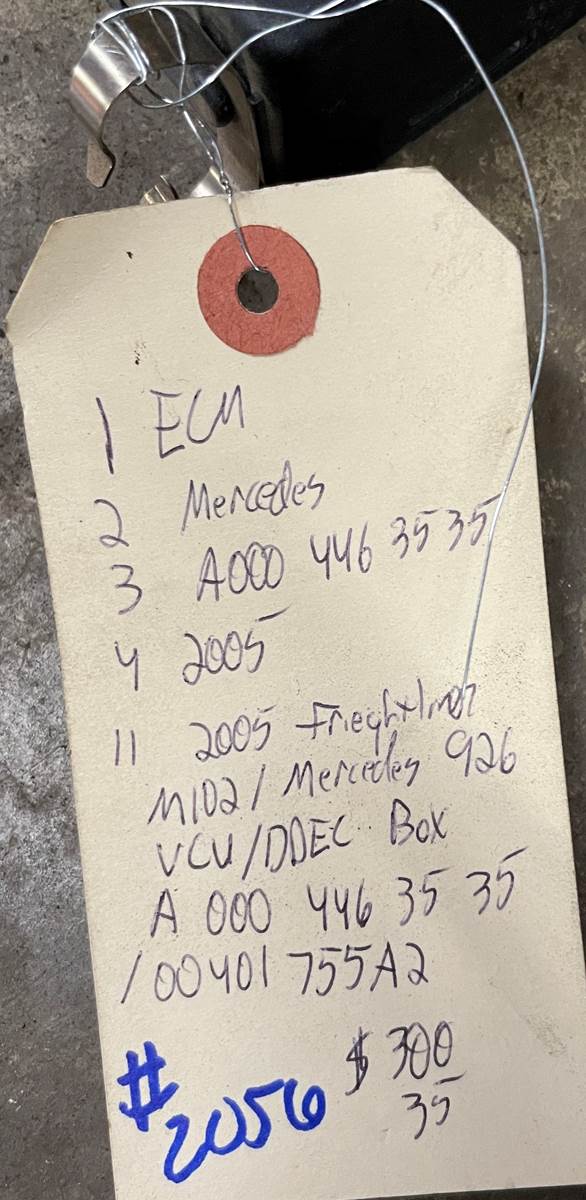 1 ECM
2 Mercedes
3 A000 446 35 35
4 2005
11 2005 Frieghtliner
M1D2 / Mercedes 926
VCU/DDEC Box
A 000 446 35 35
/00401755A2
$300
35
#2056